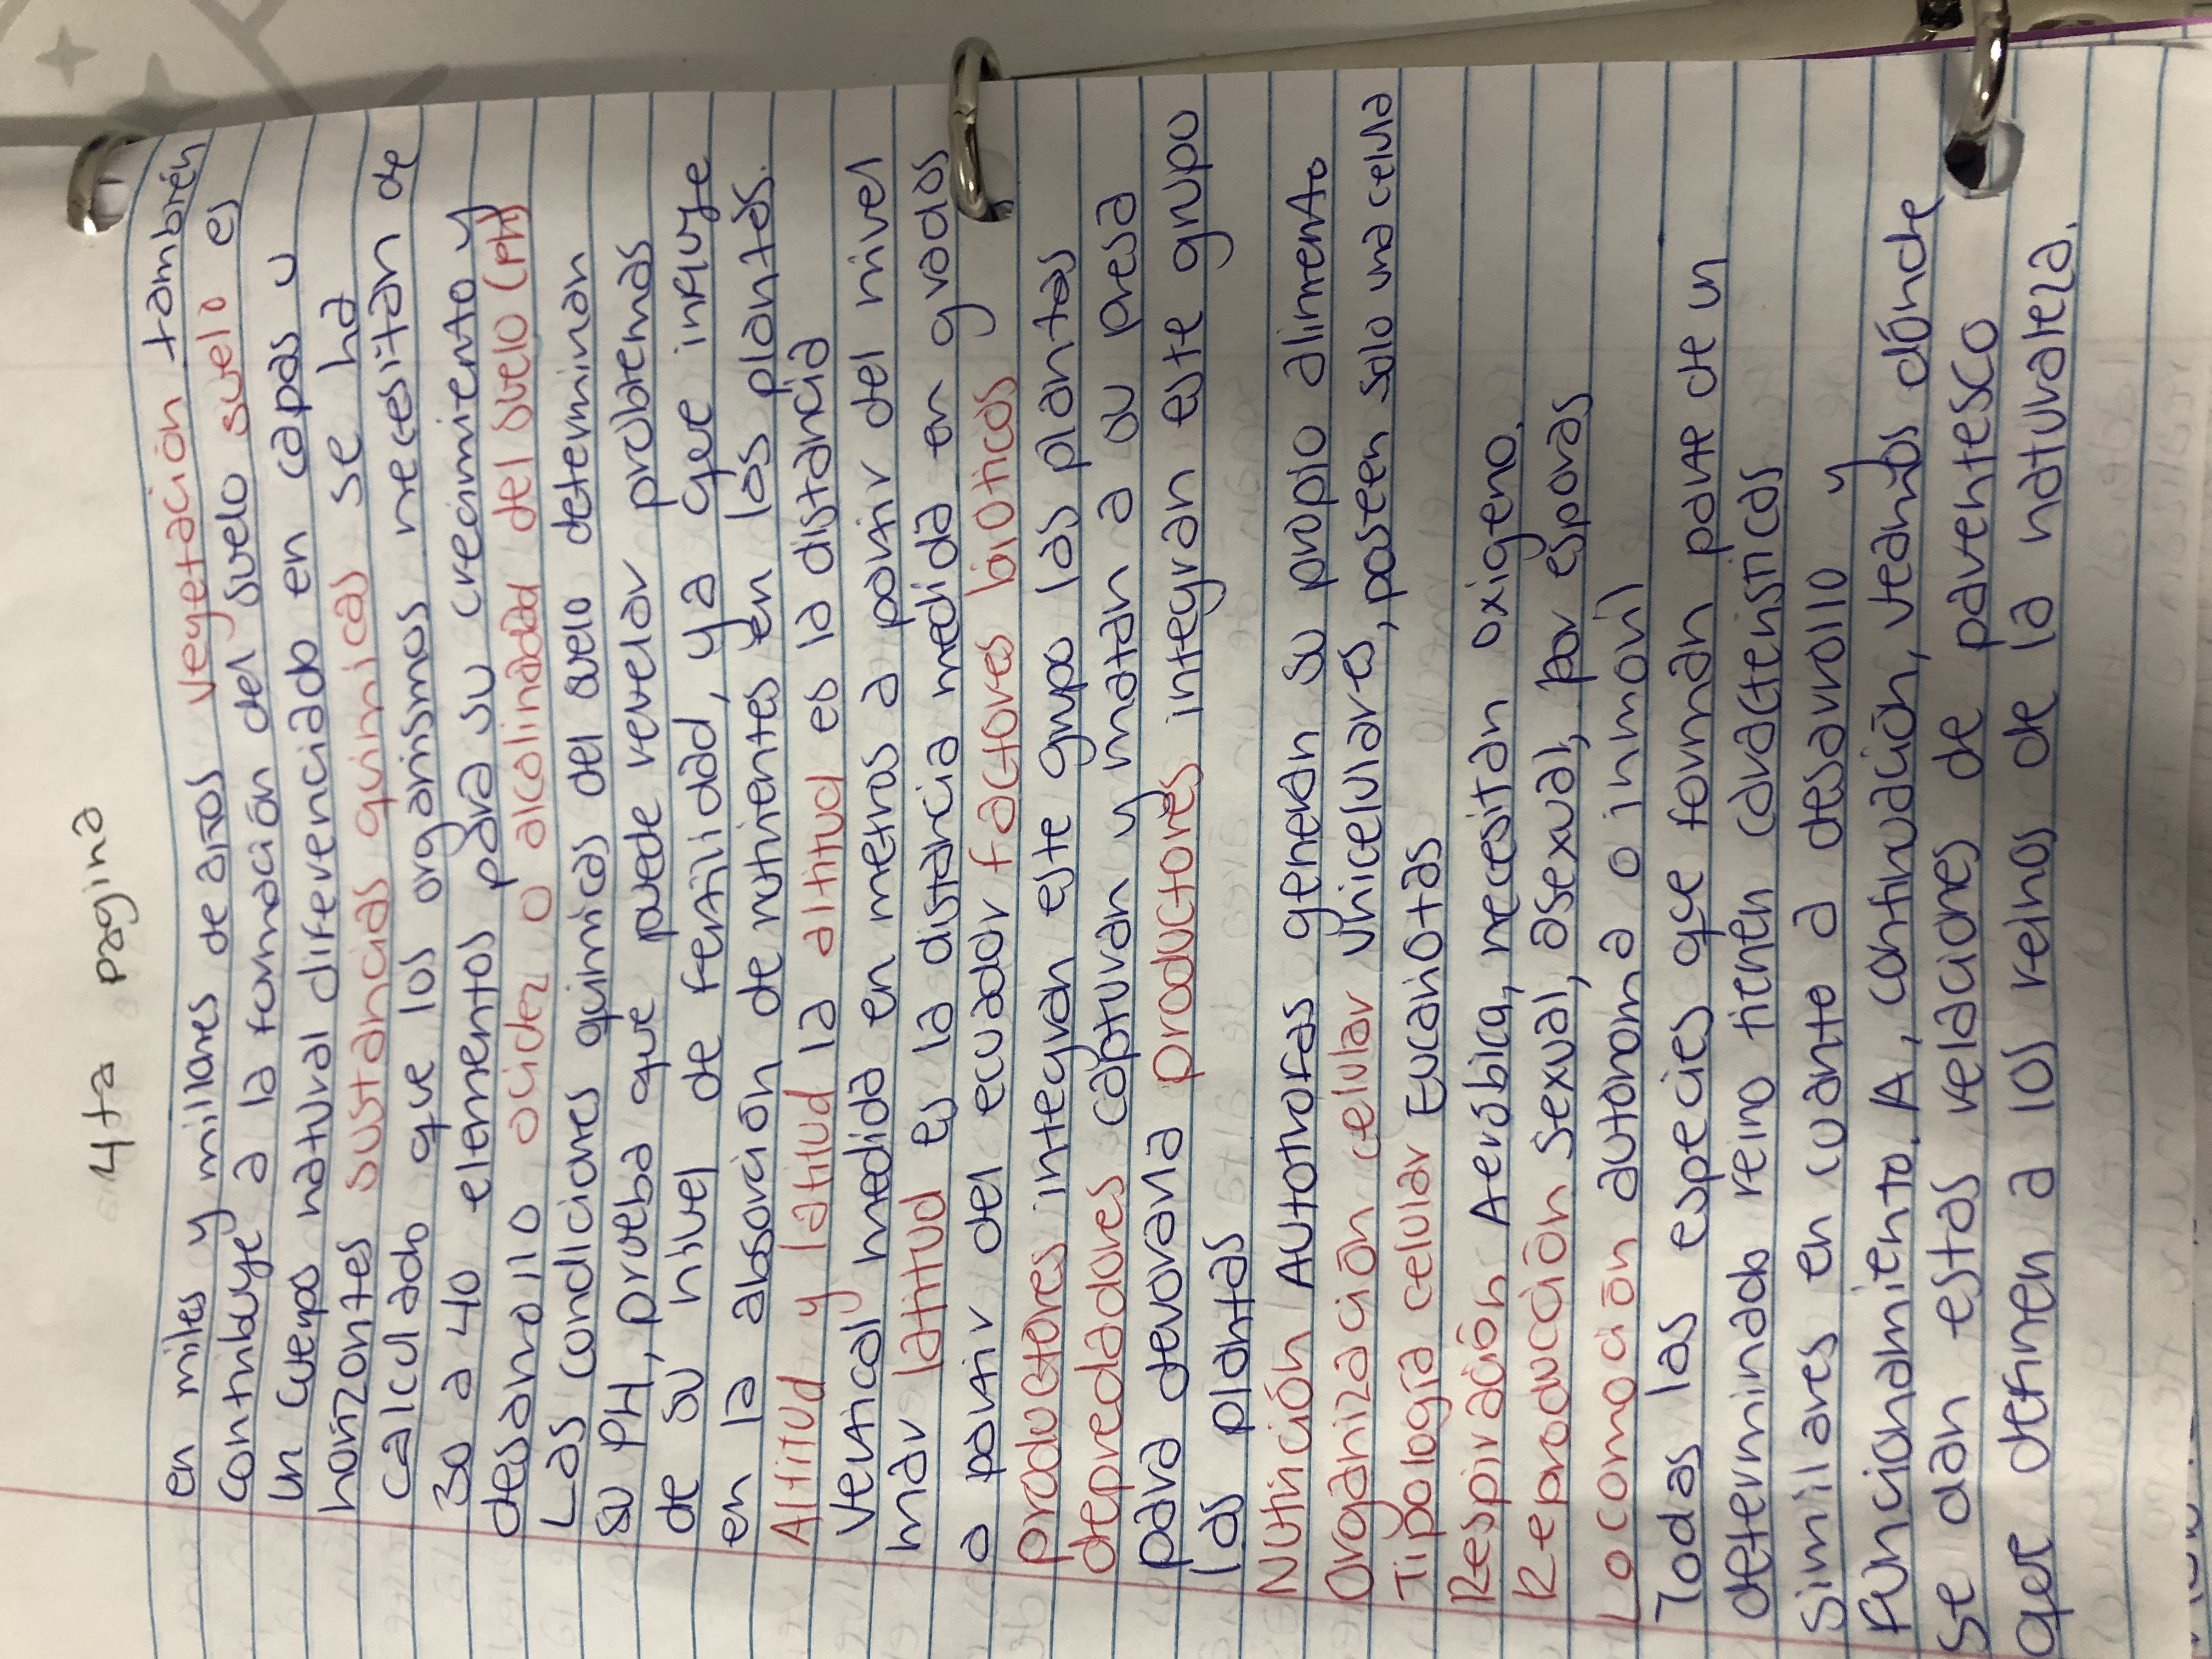 4ta pagina
en miles y millones de años vegetación también
contribuye a la formación del suelo suelo es
un cuerpo natural diferenciado en capas u
horizontes sustancias quimicas se ha
calculado que los organismos necesitan de
30 a 40 elementos para su crecimiento y
desarrollo acidez o alcalinadad del suelo (pH)
Las condiciones quimicas del suelo determinan
su PH, prueba que puede revelar problemas
de su nivel de fertilidad, ya que influye
en la absorción de nutrientes en las plantas.
Altitud y latitud la altitud es la distancia
vertical medida en metros a partir del nivel
mar latitud es la distancia medida en grados
a partir del ecuador factores bioticos
productores integran este grupo las plantas
depredadores capturan y matan a su presa
para devorarla productores integran este grupo
las plantas
Nutrición Autotrofas generan su propio alimento
Organización celular Unicelulares, poseen solo una celula
Tipología celular Eucariotas
Respiración Aerobica, necesitan oxigeno.
Reproducción sexual, asexual, por esporas
Locomoción autonoma o inmovil
Todas las especies que forman parte de un
determinado reino tienen caracteristicas
similares en cuanto a desarrollo y
funcionamiento. A, continuación, veamos dónde
se dan estas relaciones de parentesco
que definen a los reinos de la naturaleza.